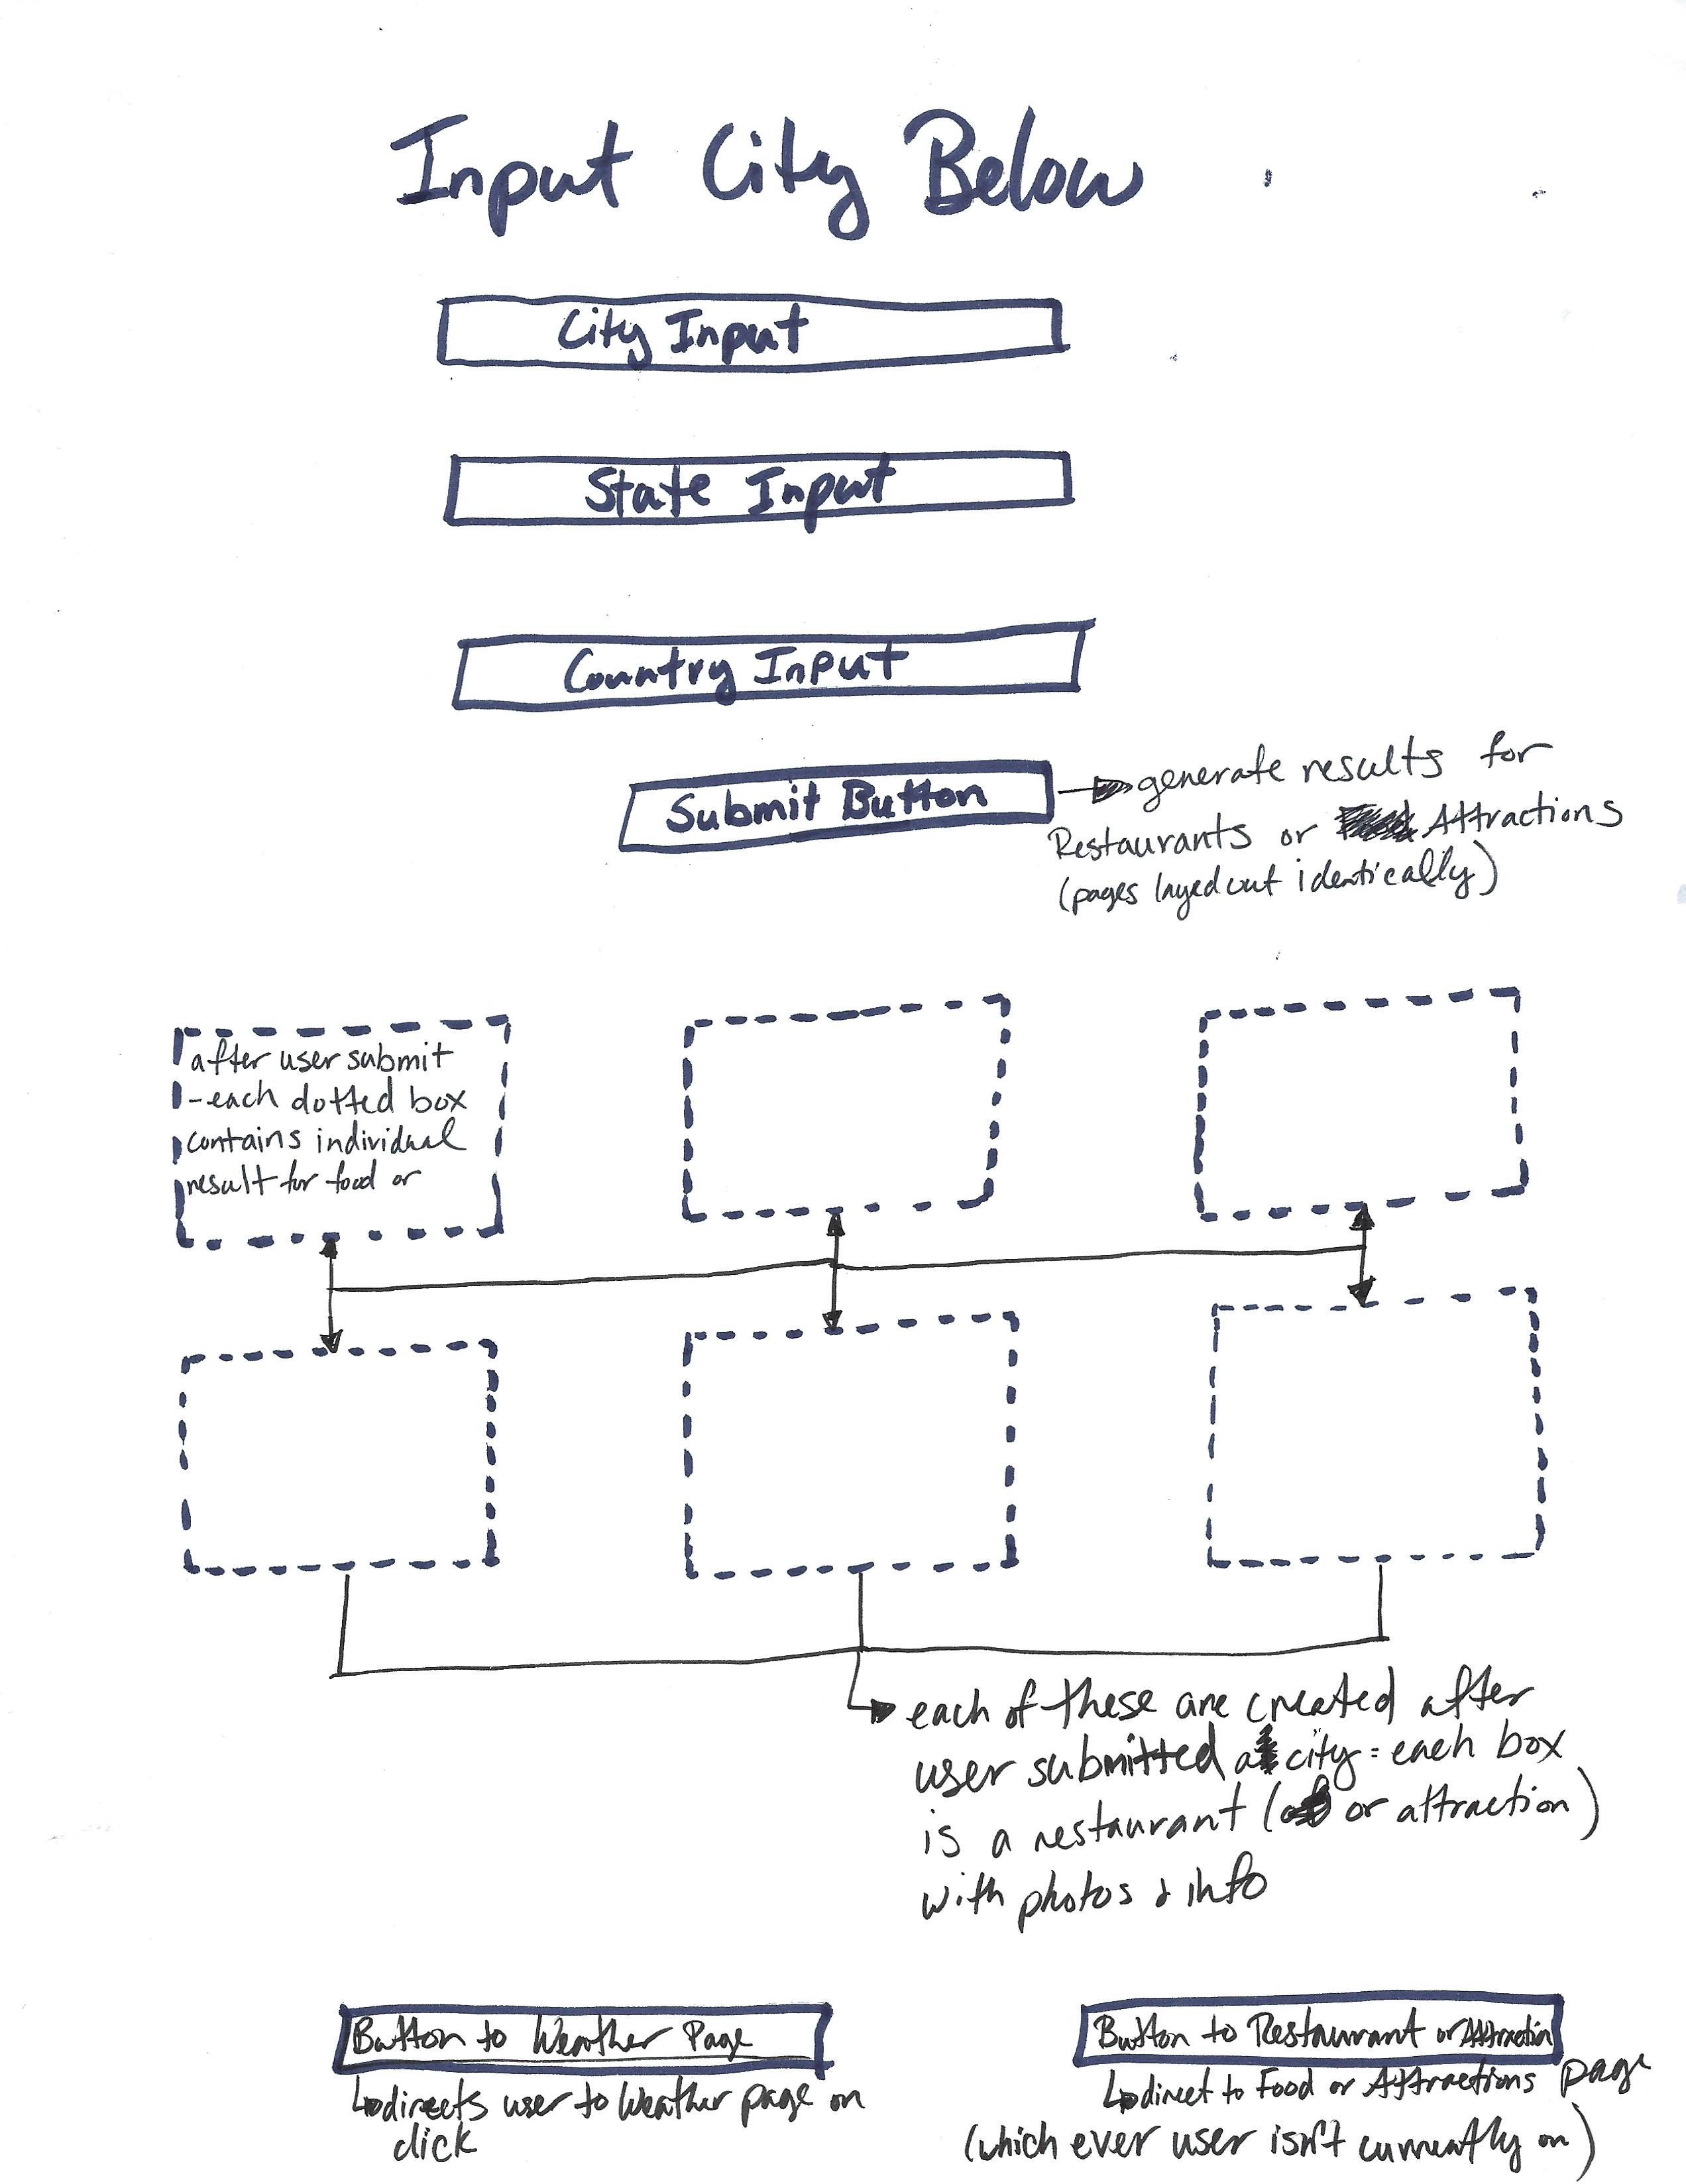 Input City Below
City Input
State Input
Country Input
Submit Button
generate results for
Restaurants or Attractions
(pages layed out identically)
after user submit
-each dotted box
contains individual
result for food or
each of these are created after
user submitted a city = each box
is a restaurant ( or attraction)
with photos & info
Button to Weather Page
directs user to Weather page on
click
Button to Restaurant or Attraction
direct to Food or Attractions page
(which ever user isn't currently on)